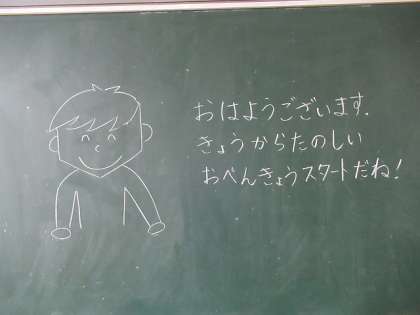 おはようございます.
きょうからたのしい
おべんきょうスタートだね!